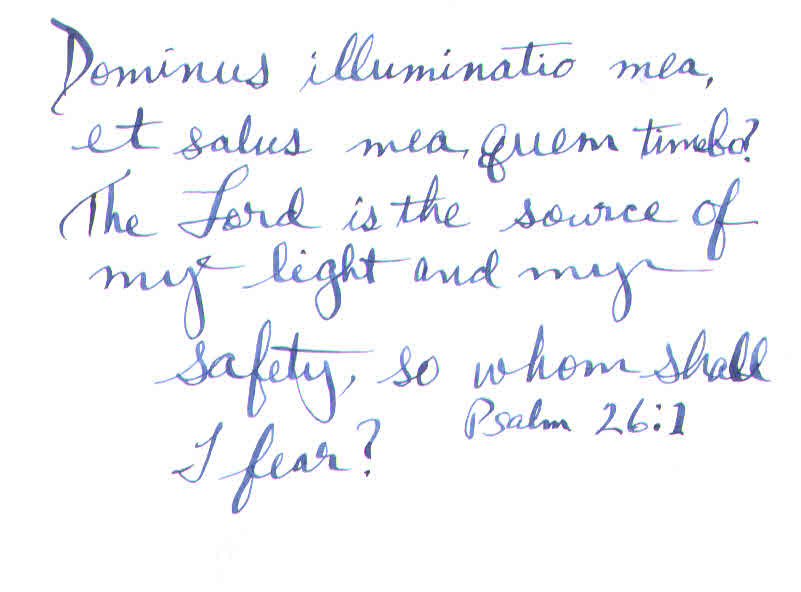 Dominus illuminatio mea,
et salus mea, quem timebo?
The Lord is the source of
my light and my
safety, so whom shall
I fear?
Psalm 26:1